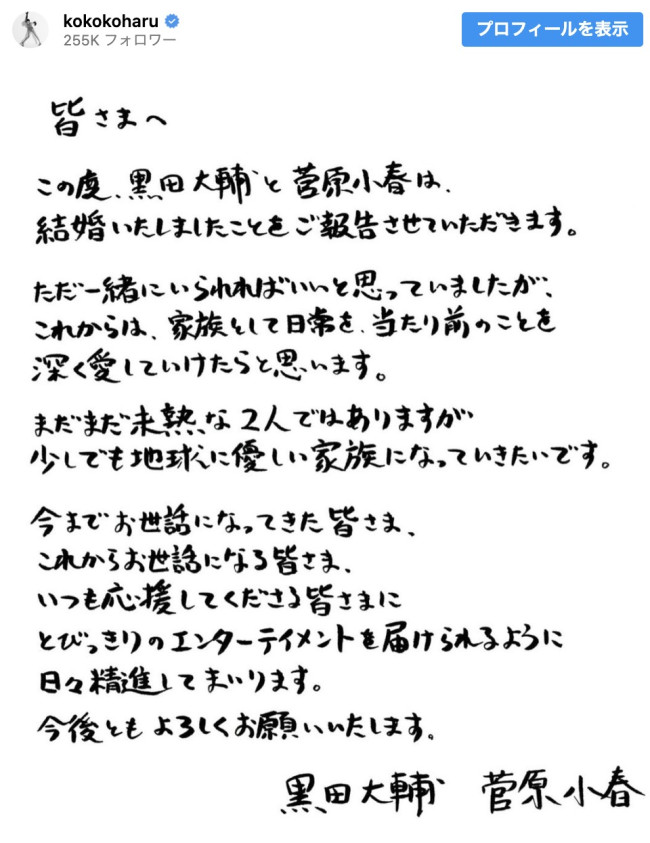 kokokoharu
255K フォロワー
プロフィールを表示
皆さまへ
この度、黒田大輔と菅原小春は、
結婚いたしましたことをご報告させていただきます。
ただ一緒にいられればいいと思っていましたが、
これからは、家族として日常を、当たり前のことを
深く愛していけたらと思います。
まだまだ未熟な2人ではありますが
少しでも地球に優しい家族になっていきたいです。
今までお世話になってきた皆さま、
これからお世話になる皆さま、
いつも応援してくださる皆さまに
とびっきりのエンターテイメントを届けられるように
日々精進してまいります。
今後ともよろしくお願いいたします。
黒田大輔 菅原小春